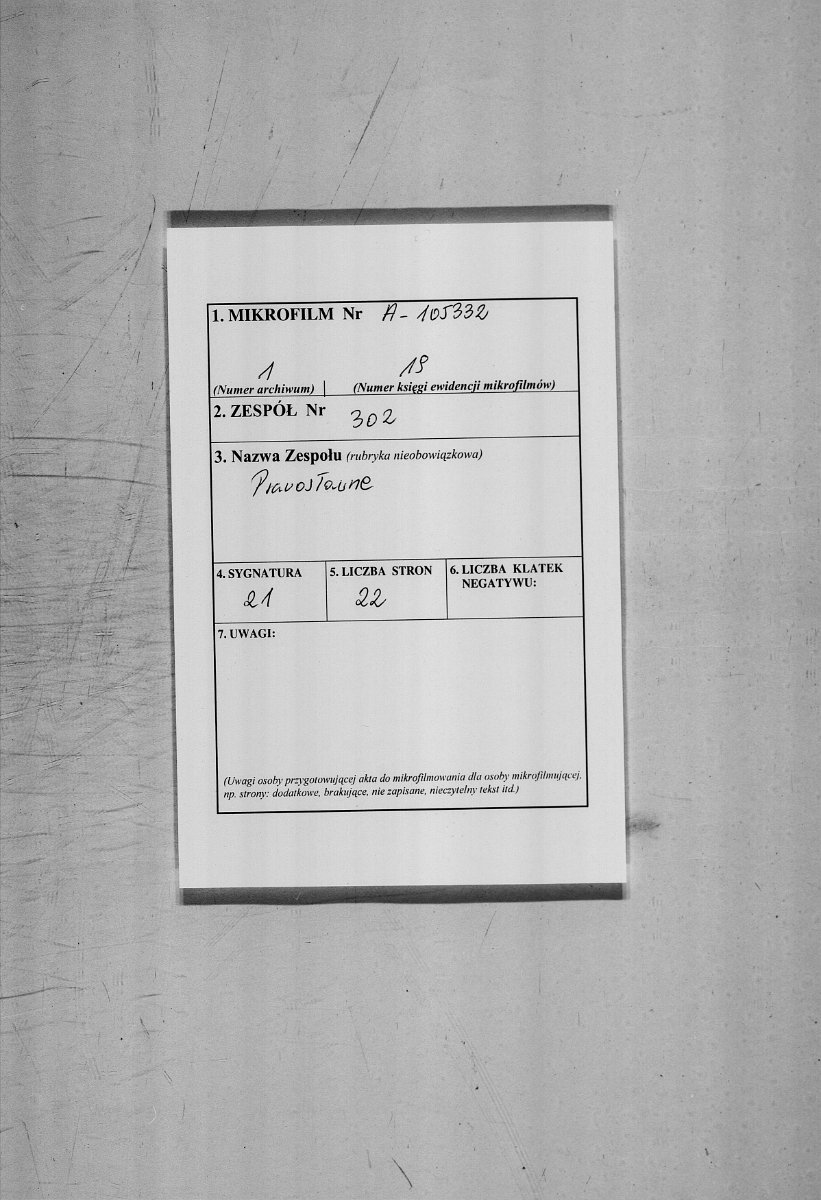 1. MIKROFILM Nr A - 105332
1 19
(Numer archiwum) (Numer księgi ewidencji mikrofilmów)
2. ZESPÓŁ Nr 302
3. Nazwa Zespołu (rubryka nieobowiązkowa)
Prawosławne
4. SYGNATURA 5. LICZBA STRON 6. LICZBA KLATEK
NEGATYWU:
21 22
7. UWAGI:
(Uwagi osoby przygotowującej akta do mikrofilmowania dla osoby mikrofilmującej,
np. strony: dodatkowe, brakujące, nie zapisane, nieczytelny tekst itd.)